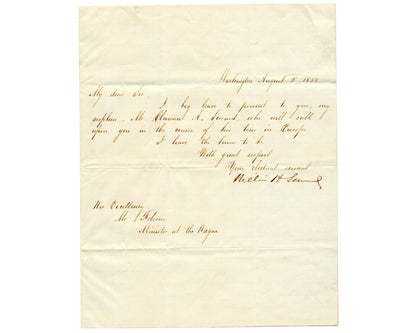 Washington August 5 1858
My dear Sir,
I beg leave to present to you, my
nephew Mr Clarence A. Seward, who will call
upon you in the course of his tour in Europe
I have the honor to be
With great respect
Your obedient servant
William H Seward
His Excellency
Mr Folsom
Minister at the Hague